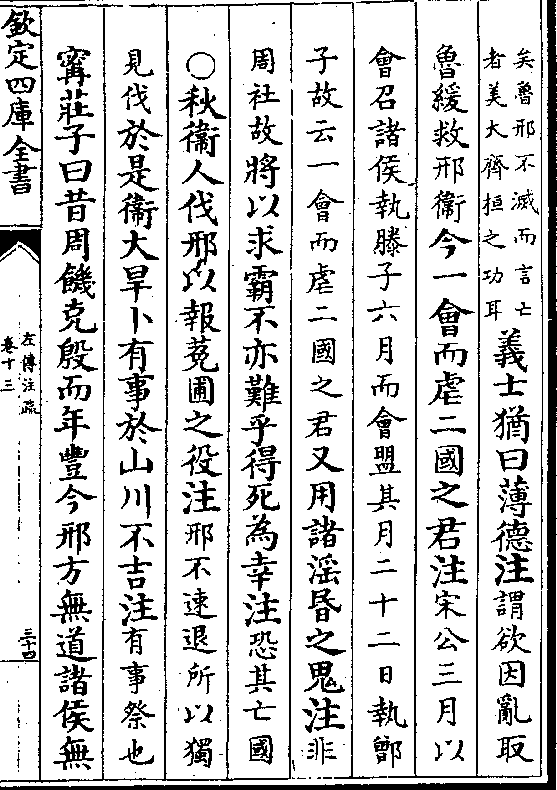 矣魯邢不滅而言亡
者美大齊桓之功耳
義士猶曰薄德注謂欲因亂取
魯緩救邢衞今一會而虐二國之君注宋公三月以
會召諸侯執滕子六月而會盟其月二十二日執鄫
子故云一會而虐二國之君又用諸淫昏之鬼注非
周社故將以求霸不亦難乎得死為幸注恐其亡國
○秋衞人伐邢以報菟圃之役注邢不速退所以獨
見伐於是衞大旱卜有事於山川不吉注有事祭也
寗莊子曰昔周饑克殷而年豐今邢方無道諸侯無
欽定四庫全書
左傳注疏
卷十三
三十四